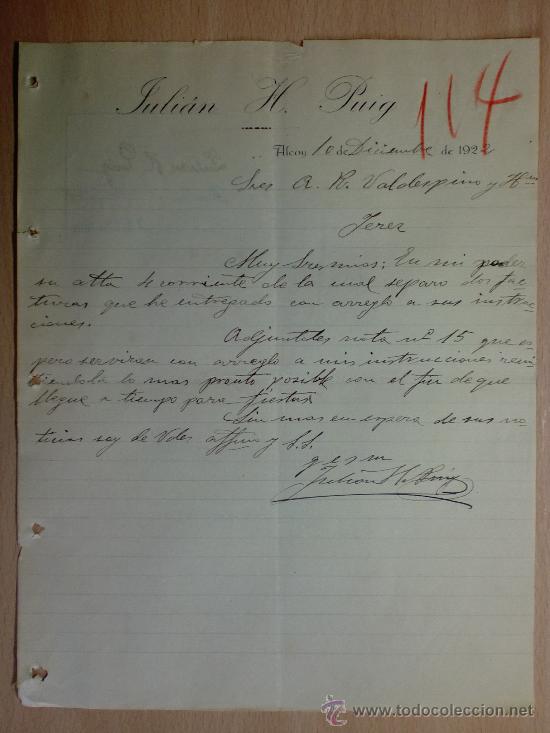 Julián H. Puig
114
Alcoy 10 de Diciembre de 1922
Sres A. R. Valdespino y Hno
Jerez
Muy Sres mios: En mi poder
su atta 4 corriente de la cual separo dos fac-
turas que he entregado con arreglo a sus instruc-
ciones.
Adjuntoles nota nº 15 que es-
pero serviran con arreglo a mis instrucciones remi-
tiendola lo mas pronto posible con el fin de que
llegue a tiempo para fiestas
Sin mas en espera de sus no-
ticias soy de Vdes affmo y S.S.
q e s m
Julián H. Puig
www.todocoleccion.net